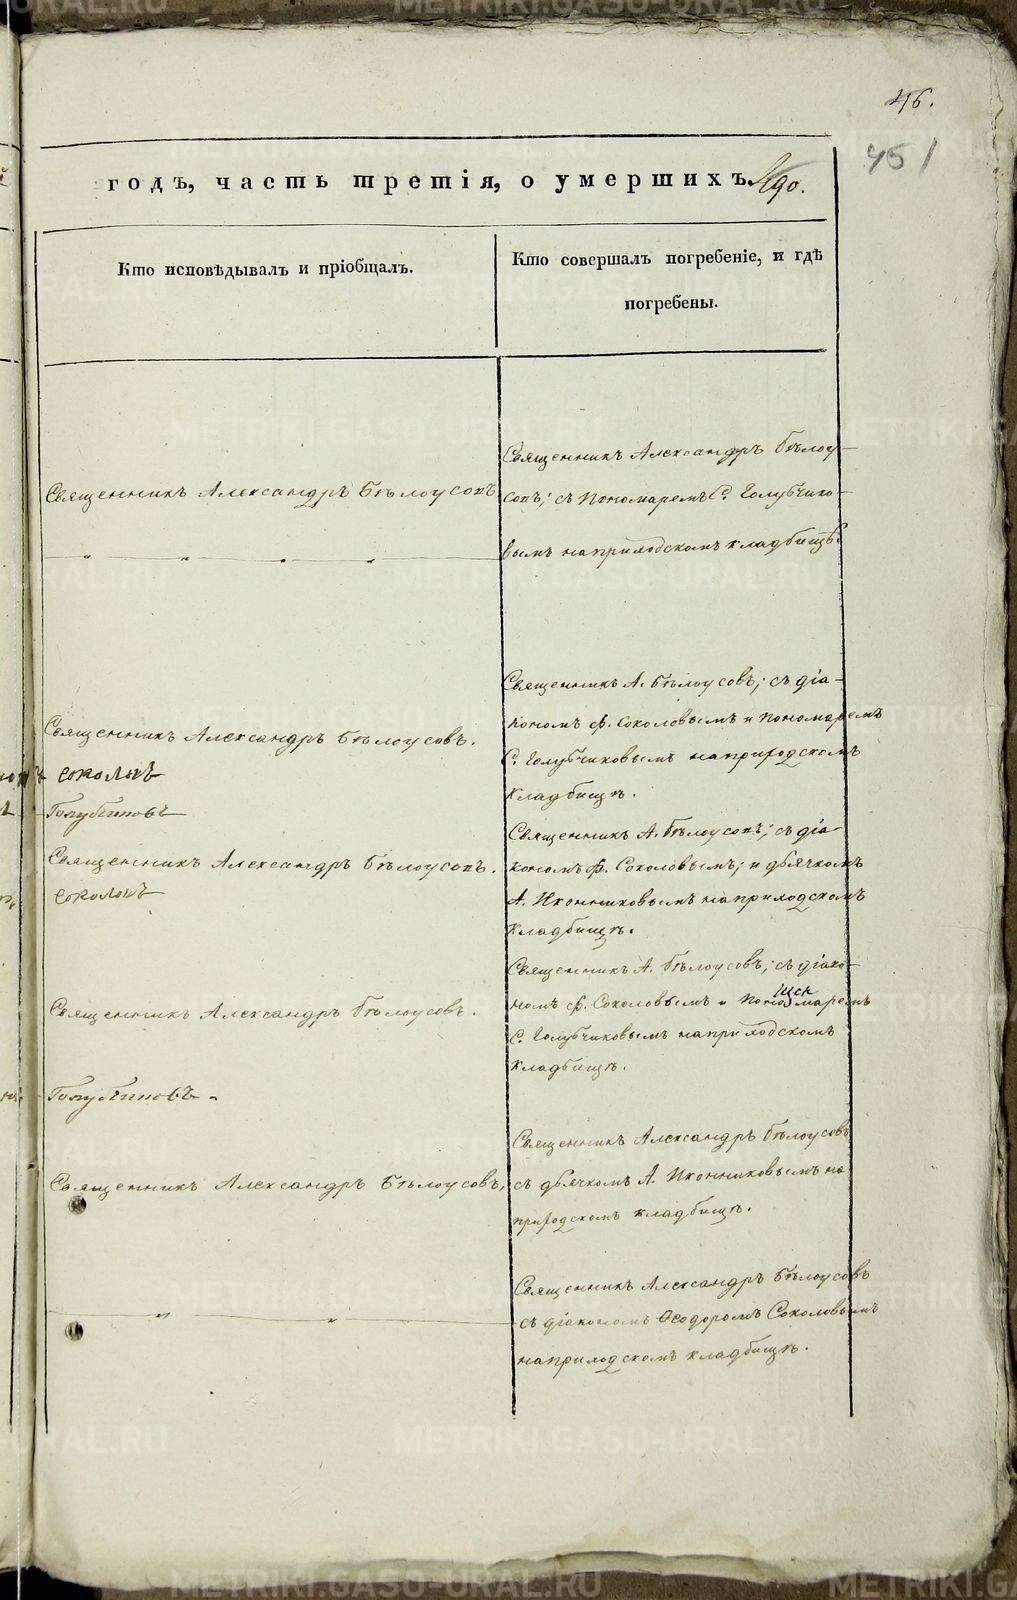 46.
45 1
годъ, часть третія, о умершихъ
Кто исповѣдывалъ и пріобщалъ.
Кто совершалъ погребеніе, и гдѣ
погребены.
Священникъ Александръ Бѣлоусовъ
Священникъ Александръ Бѣлоу-
совъ; съ пономаремъ С. Голубчико-
вымъ на приходскомъ кладбищѣ.
Священникъ Александръ Бѣлоусовъ.
Соколовъ
Священникъ А. Бѣлоусовъ; съ діа-
кономъ Ѳ. Соколовымъ и пономаремъ
С. Голубчиковымъ на приходскомъ
кладбищѣ.
Священникъ Александръ Бѣлоусовъ.
Соколовъ
Священникъ А. Бѣлоусовъ; съ діа-
кономъ Ѳ. Соколовымъ; и дьячкомъ
А. Иконниковымъ на приходскомъ
кладбищѣ.
Священникъ Александръ Бѣлоусовъ.
Священникъ А. Бѣлоусовъ; съ діако-
номъ Ѳ. Соколовымъ и пономаремъ
С. Голубчиковымъ на приходскомъ
кладбищѣ.
Священникъ Александръ Бѣлоусовъ,
Священникъ Александръ Бѣлоусовъ
съ дьячкомъ А. Иконниковымъ на
приходскомъ кладбищѣ.
Священникъ Александръ Бѣлоусовъ
съ діакономъ Ѳеодоромъ Соколовымъ
на приходскомъ кладбищѣ.
METRIKI.GASO-URAL.RU